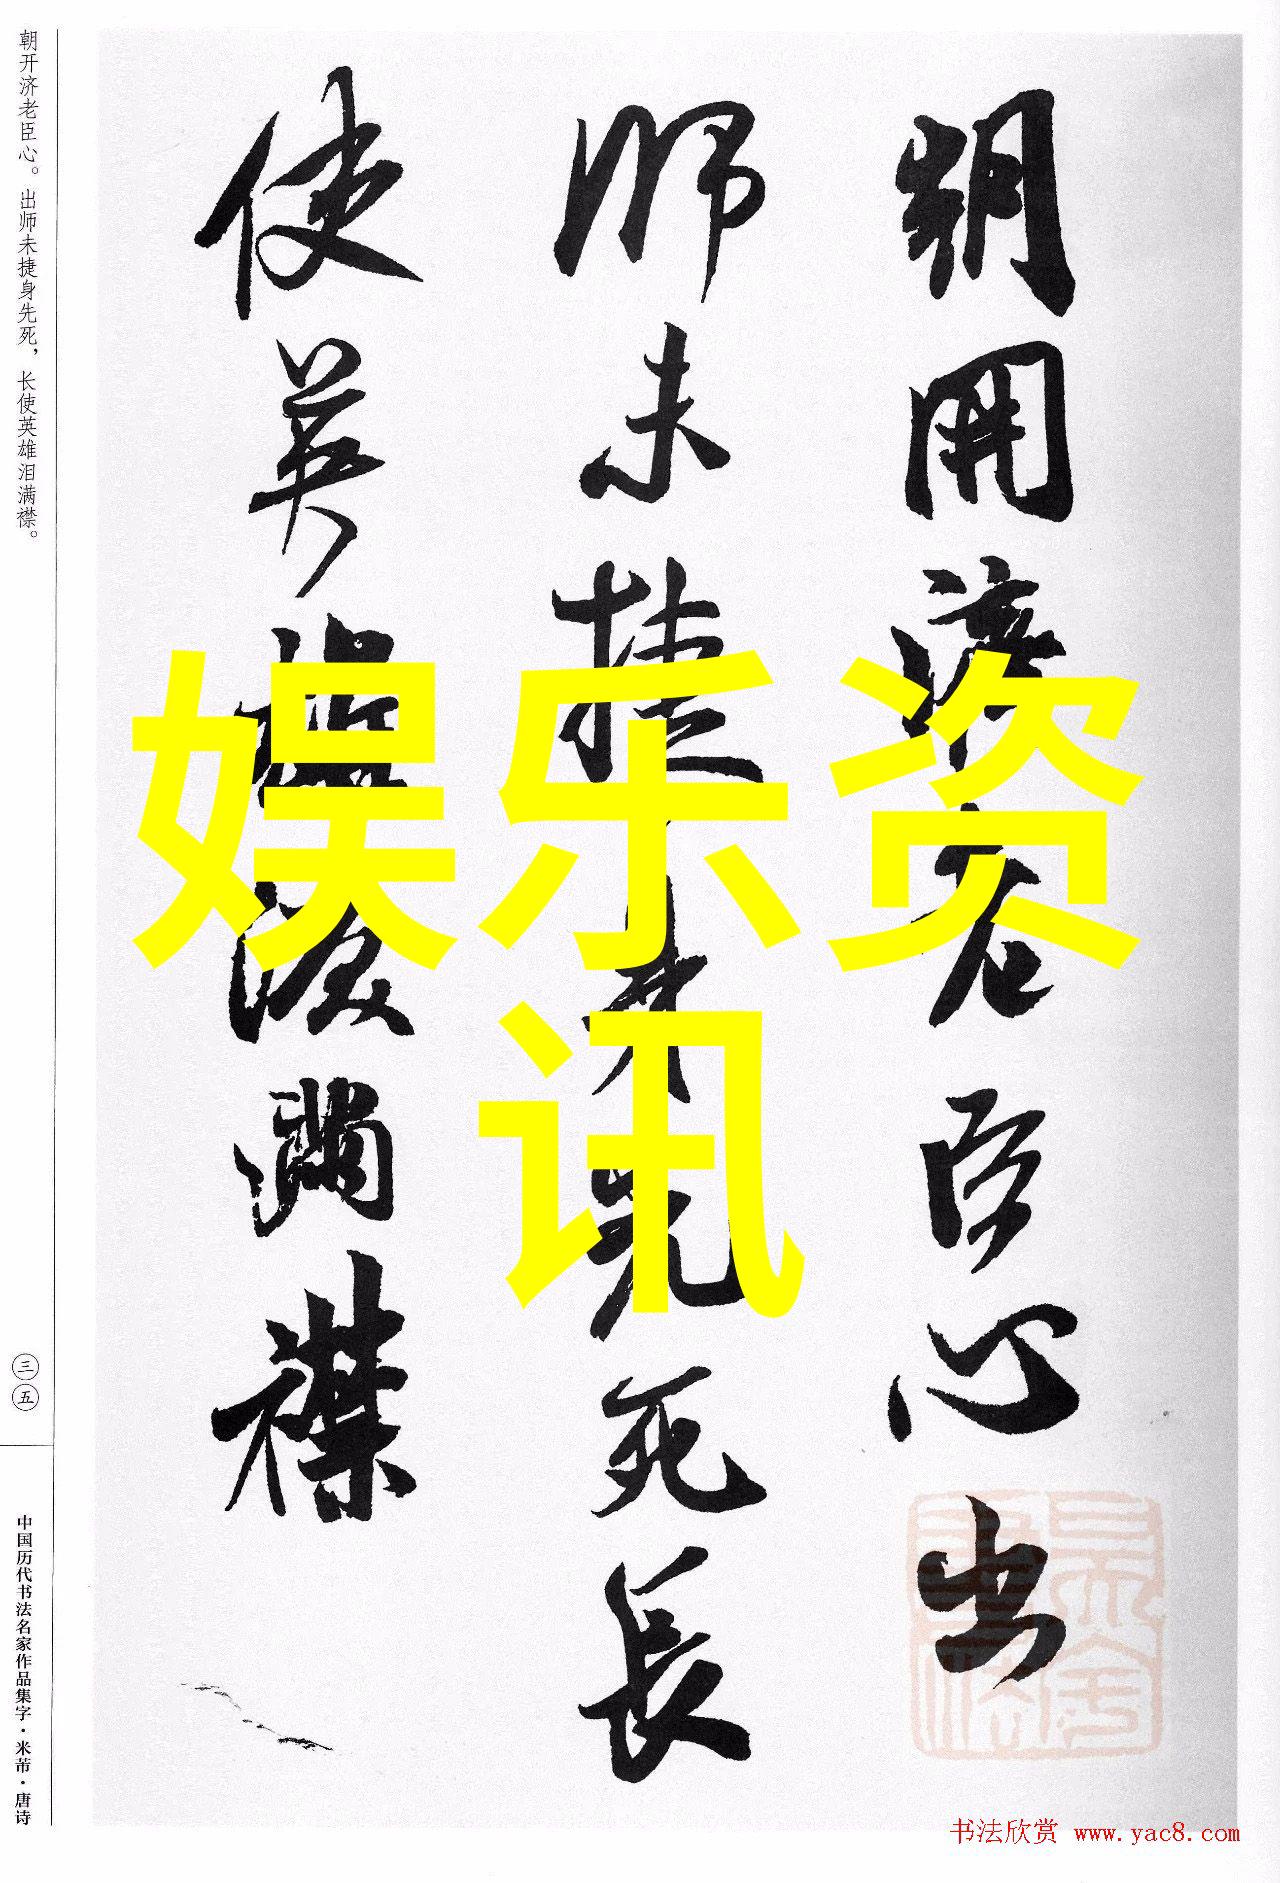 朝開濟老臣心出
師未捷身先死長
使英雄淚滿襟
娱乐资
讯
朝开济老臣心。出师未捷身先死，长使英雄泪满襟。
三五
中国历代书法名家作品集字·米芾·唐诗
书法欣赏 www.yac8.com